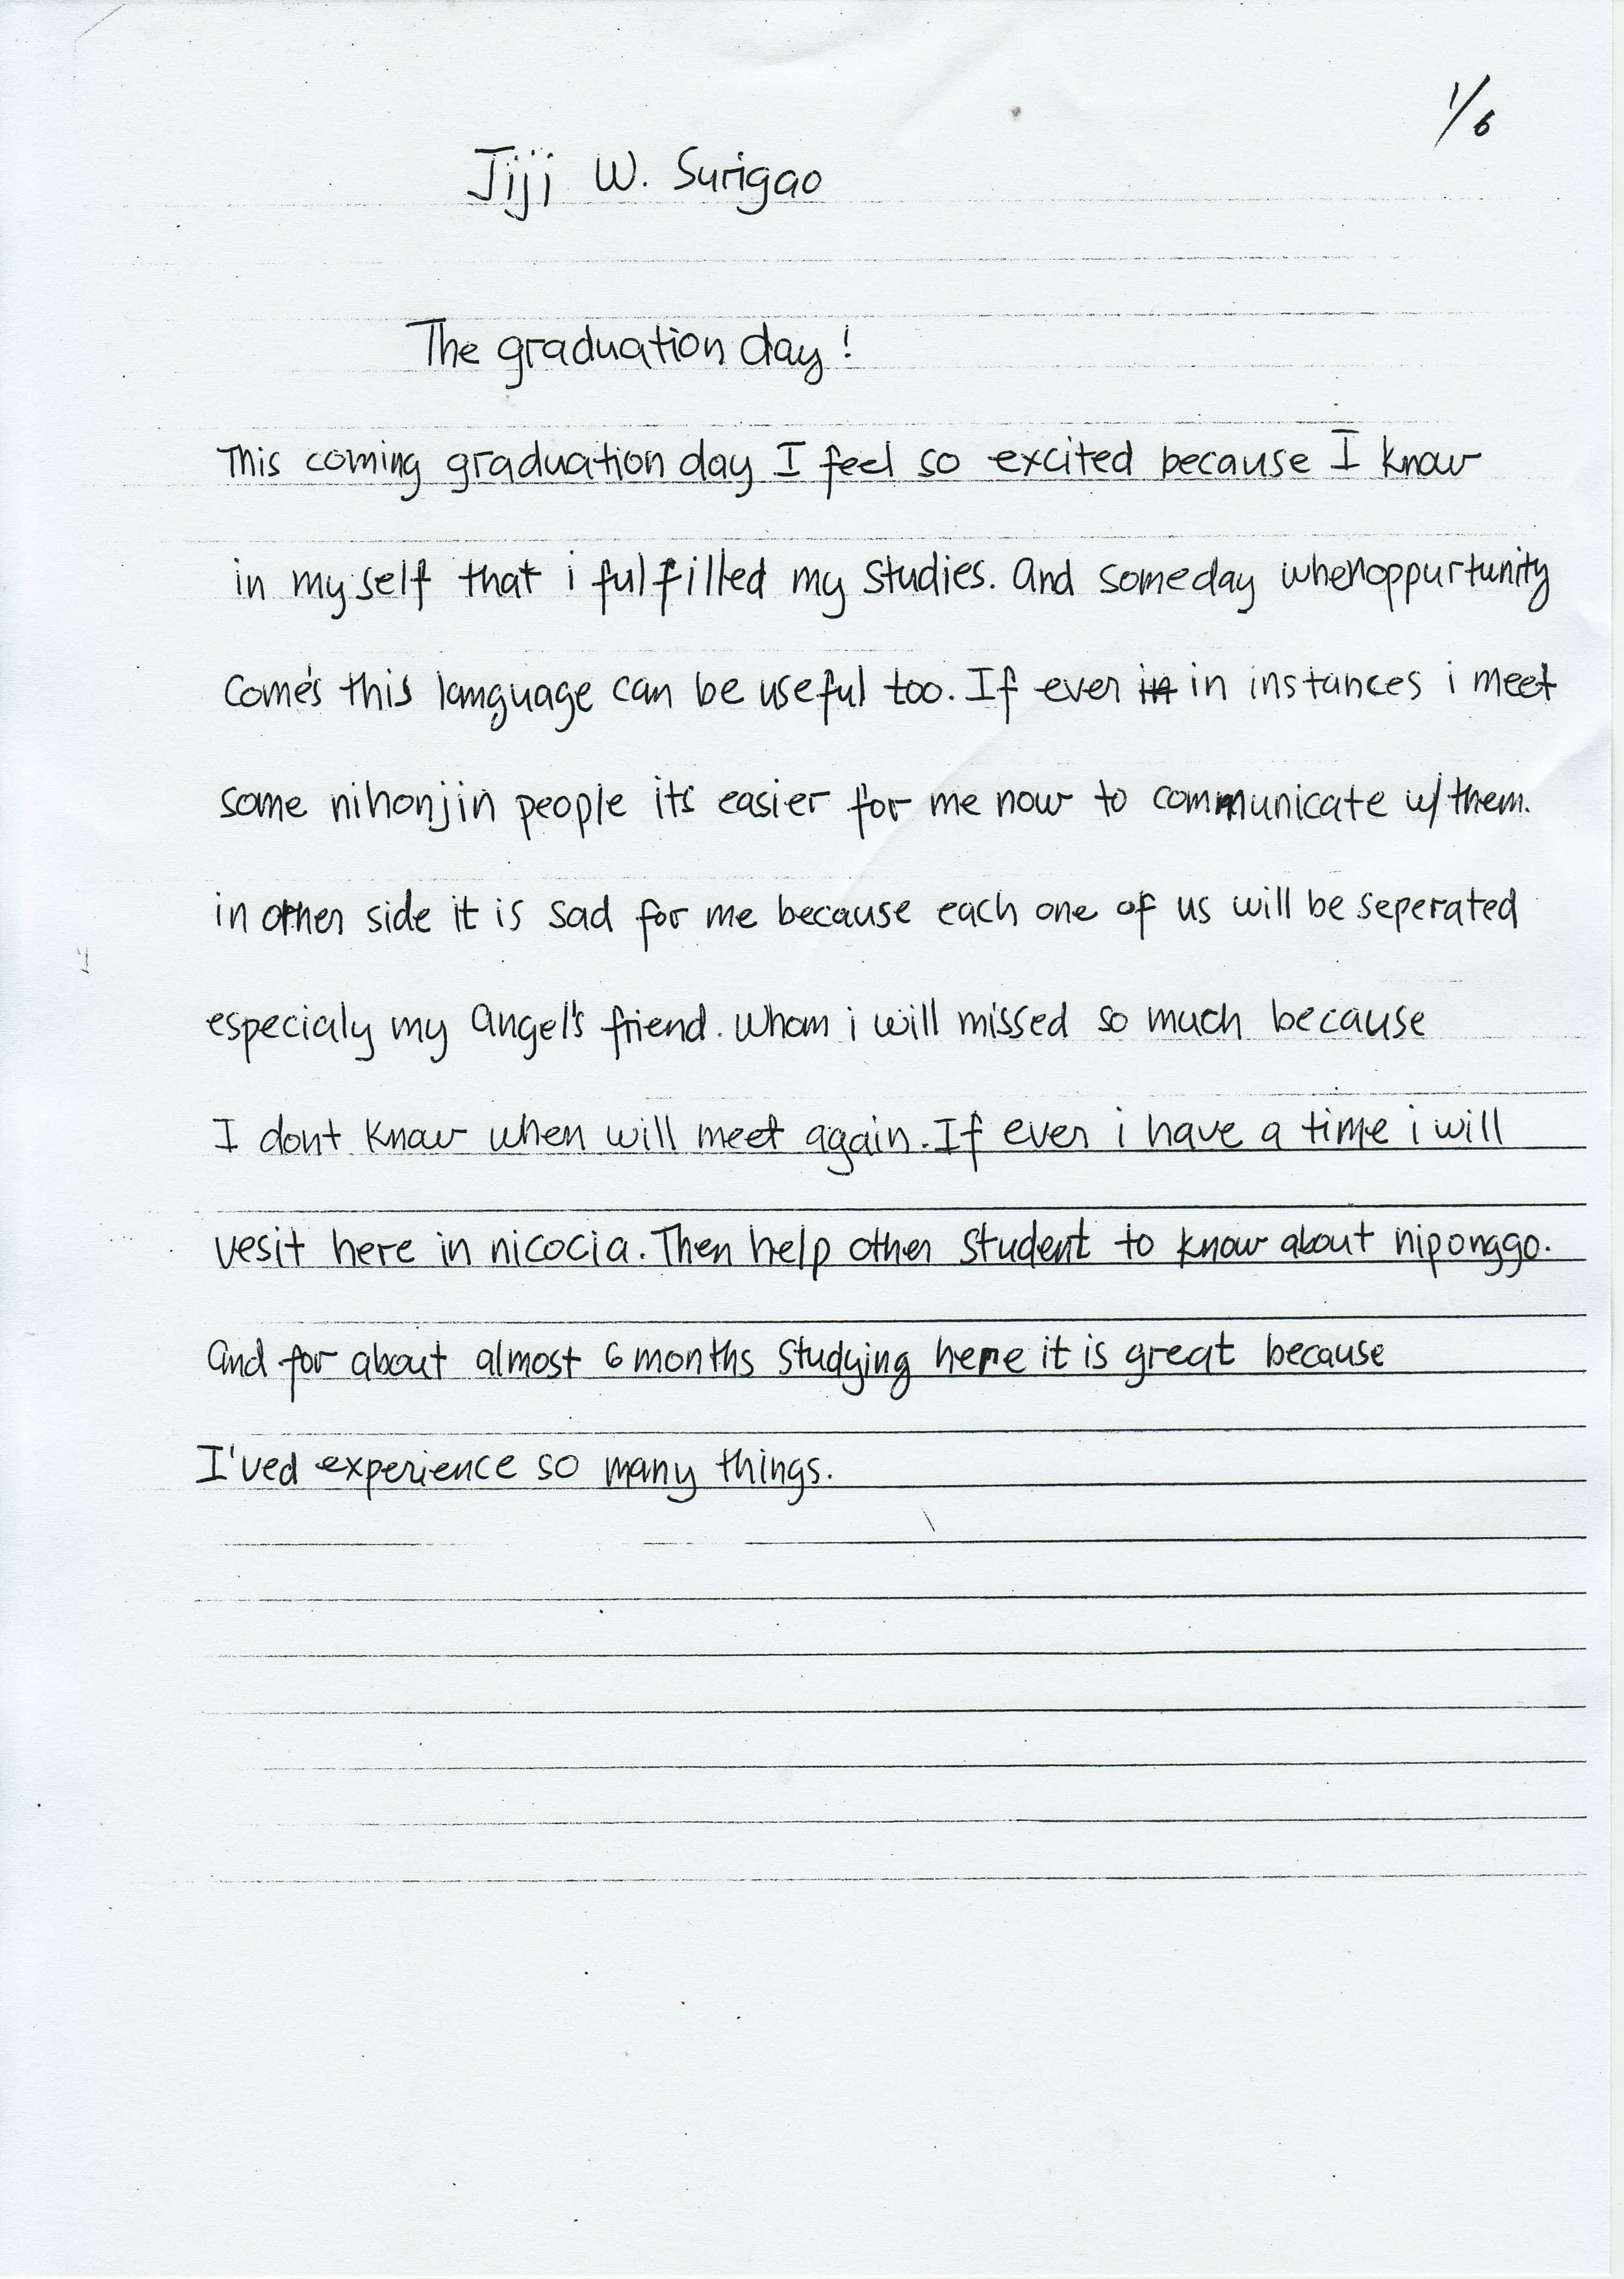 1/6
Jiji W. Surigao
The graduation day !
This coming graduation day I feel so excited because I know
in my self that i fulfilled my studies. And someday when oppurtunity
come's this language can be useful too. If ever in in instances i meet
some nihonjin people its easier for me now to communicate w/ them.
in other side it is sad for me because each one of us will be seperated
especialy my angel's friend. Whom i will missed so much because
I dont know when will meet again. If ever i have a time i will
vesit here in nicocia. Then help other student to know about niponggo.
And for about almost 6 months studying here it is great because
I'ved experience so many things.